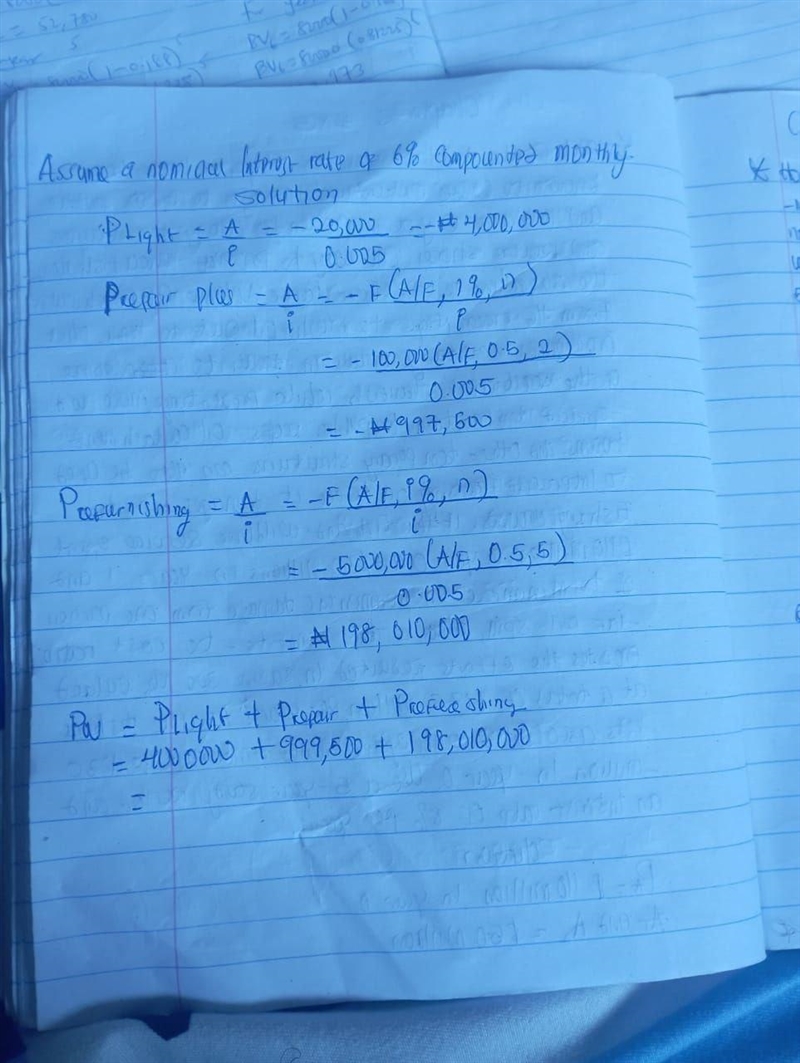 = 52,780
5
(1-0.188)
PV6 = 80000 (0.81225)6
973
Assume a nominal Interest rate of 6% compounded monthly.
solution
PLight = A/i = -20,000/0.005 = -₦4,000,000
Prepair plus = A/i = -F(A/F, i%, n)/i
= -100,000(A/F, 0.5, 2)/0.005
= -₦997,500
Prefurnishing = A/i = -F(A/F, i%, n)/i
= -5000,000(A/F, 0.5, 5)/0.005
= ₦198,010,000
PW = PLight + Prepair + Prefureshing
= 4000000 + 999,500 + 198,010,000
=